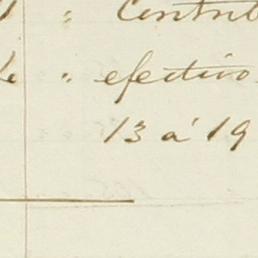 " Contrib
" efectivo
13 á 19